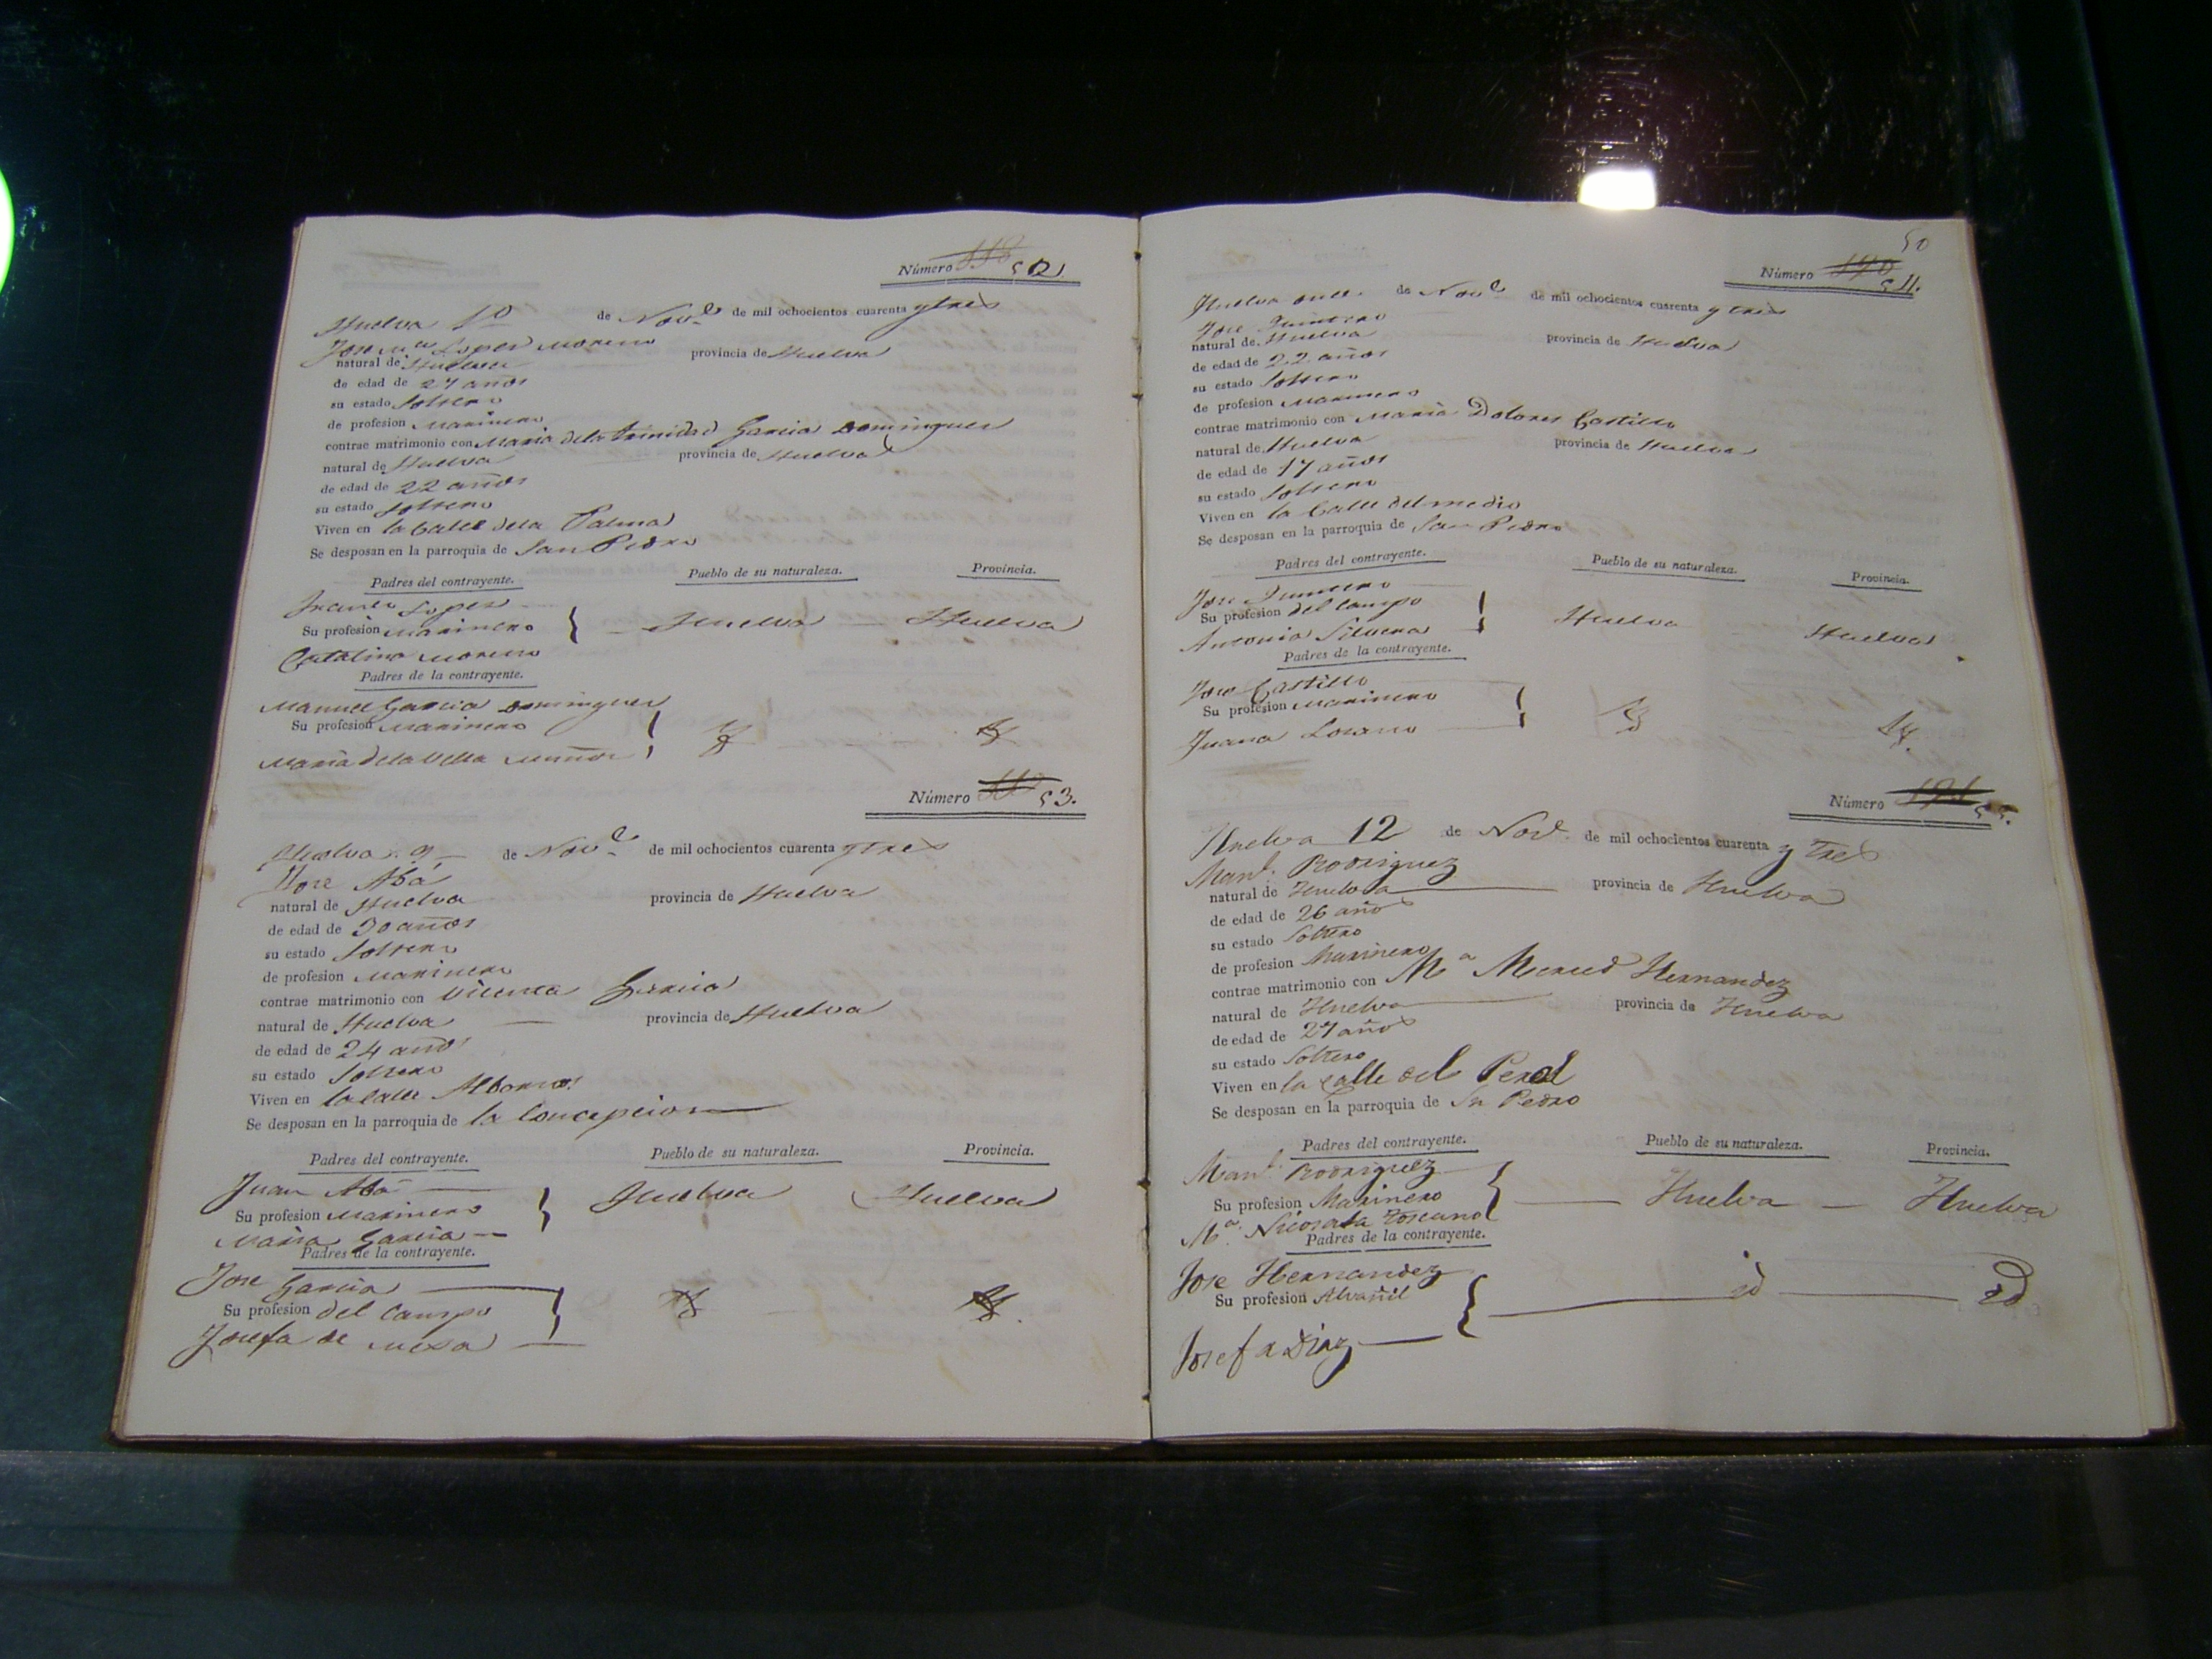 Número 118 52
Huelva 10 de Nov.e de mil ochocientos cuarenta y tres
Jose M.a Lopez Moreno
natural de Huelva provincia de Huelva
de edad de 27 años
su estado Soltero
de profesion Marinero
contrae matrimonio con Maria dela trinidad Garcia Dominguez
natural de Huelva provincia de Huelva
de edad de 22 años
su estado Soltero
Viven en la Calle dela Palma
Se desposan en la parroquia de San Pedro
Padres del contrayente. Pueblo de su naturaleza. Provincia.
Lopez
Su profesion Marinero Huelva Huelva
Catalina Moreno
Padres de la contrayente.
Manuel Garcia Dominguez
Su profesion Marinero
Maria dela Bella Muñoz
Número 53.
Huelva 9 de Nov.e de mil ochocientos cuarenta y tres
Jose Abá
natural de Huelva provincia de Huelva
de edad de 30 años
su estado Soltero
de profesion Marinero
contrae matrimonio con Vicenta Garcia
natural de Huelva provincia de Huelva
de edad de 24 años
su estado Soltero
Viven en la Calle
Se desposan en la parroquia de la Concepcion
Padres del contrayente. Pueblo de su naturaleza. Provincia.
Juan Abá
Su profesion Marinero Huelva Huelva
Maria Garcia
Padres de la contrayente.
Jose Garcia
Su profesion del Campo
Josefa de Mesa
50
Número 120
Huelva once de Nov.e de mil ochocientos cuarenta y tres
Jose Quintero
natural de Huelva provincia de Huelva
de edad de 22 años
su estado Soltero
de profesion Marinero
contrae matrimonio con Maria Dolores Castillo
natural de Huelva provincia de Huelva
de edad de 17 años
su estado Soltero
Viven en la Calle del medio
Se desposan en la parroquia de San Pedro
Padres del contrayente. Pueblo de su naturaleza. Provincia.
Jose Quintero
Su profesion del Campo Huelva Huelva
Antonia Silvera
Padres de la contrayente.
Jose Castillo
Su profesion Marinero
Juana Lozano
Número 121 55.
Huelva 12 de Nov.e de mil ochocientos cuarenta y tres
Man.l Rodriguez
natural de Huelva provincia de Huelva
de edad de 26 años
su estado Soltero
de profesion Marinero
contrae matrimonio con M.a Merced Hernandez
natural de Huelva provincia de Huelva
de edad de 27 años
su estado Soltero
Viven en la Calle del Peral
Se desposan en la parroquia de Sn Pedro
Padres del contrayente. Pueblo de su naturaleza. Provincia.
Man.l Rodriguez
Su profesion Marinero Huelva Huelva
M.a Nicolasa Toscano
Padres de la contrayente.
Jose Hernandez
Su profesion Alvañil id id
Josefa Diaz